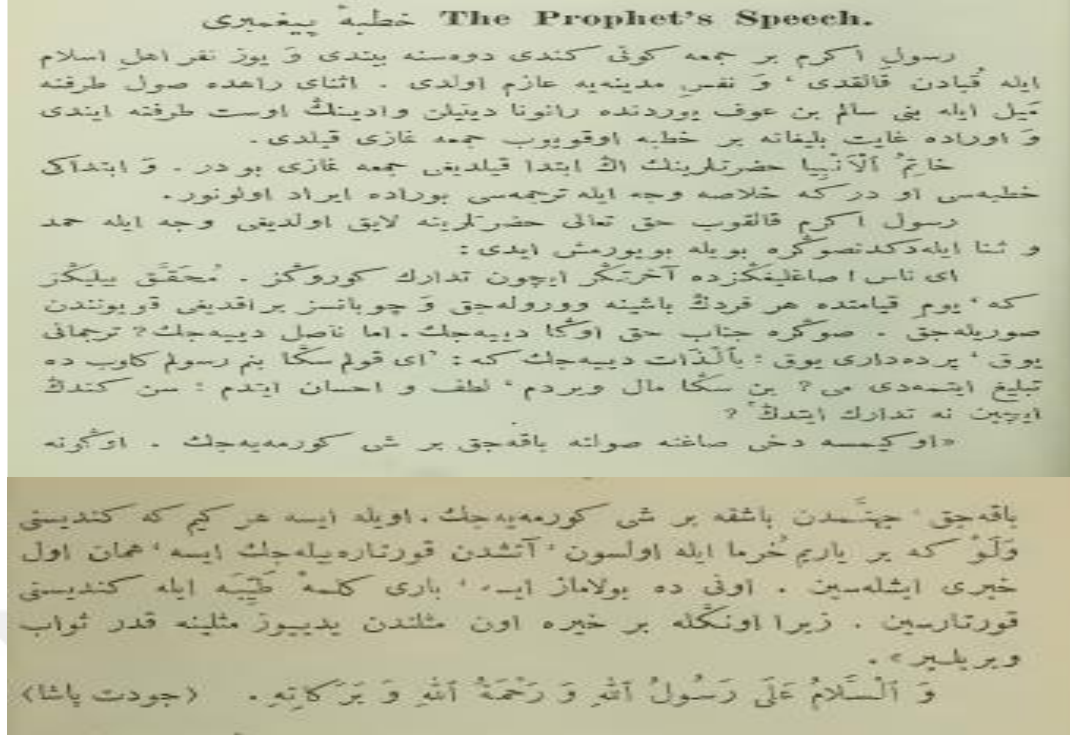 خطبهٔ پيغمبرى The Prophet's Speech.
رسولِ اكرم بر جمعه كونى كندى دوه‌سنه بيندى وَ يوز نفر اهلِ اسلام
ايله قُبادن قالقدى ، وَ نفسِ مدينه‌يه عازم اولدى . اثناى راهده صول طرفنه
مَيل ايله بنى سالم بن عوف يوردنده رانونا دينيلن وادينڭ اوست طرفنه ايندى
وَ اوراده غايت بليغانه بر خطبه اوقويوب جمعه نمازى قيلدى .
خاتِمُ ٱلْاَنْبِيا حضرتلرينڭ اڭ ابتدا قيلديغى جمعه نمازى بو در . وَ ابتداكى
خطبه‌سى او در كه خلاصه وجه ايله ترجمه‌سى بوراده ايراد اولونور.
رسول اكرم قالقوب حق تعالى حضرتلرينه لايق اولديغى وجه ايله حمد
و ثنا ايله‌دكدنصوڭره بويله بويورمش ايدى :
اى ناس ! صاغليغڭزده آخرتڭز ايچون تدارك كوروڭز . مُحقَّق بيليڭز
كه ، يوم قيامتده هر فردڭ باشينه وورولەجق وَ چوبانسز براقديغى قويوننندن
صوريله‌جق . صوڭره جنابِ حق اوڭا دييه‌جك . اما ناصل دييه‌جك ? ترجمانى
يوق ، پرده‌دارى يوق ; بٱلذّات دييه‌جك كه : ’اى قولم سڭا بنم رسولم كلوب ده
تبليغ ايتمه‌دى مى ? بن سڭا مال ويردم ، لطف و احسان ايتدم ; سن كندڭ
ايچين نه تدارك ايتدڭ‘ ?
«او كيمسه دخى صاغنه صولنه باقه‌جق بر شى كورمه‌يه‌جك . اوڭونه
باقه‌جق ، جهنَّمدن باشقه بر شى كورمه‌يه‌جك . اويله ايسه هر كيم كه كنديسنى
وَلَوْ كه بر ياريم خُرما ايله اولسون ، آتشدن قورتاره‌بيله‌جك ايسه ، همان اول
خيرى ايشله‌سين . اونى ده بولاماز ايسه ، بارى كلمهٔ طَيِّبَه ايله كنديسنى
قورتارسين . زيرا اونڭله بر خيره اون مثلندن يدييوز مثلينه قدر ثواب
ويريلير» .
وَ ٱلسَّلامُ عَلَى رَسُولُ ٱللهِ وَ رَحْمَةُ ٱللهِ وَ بَرَكَاتِهِ . (جودت پاشا)